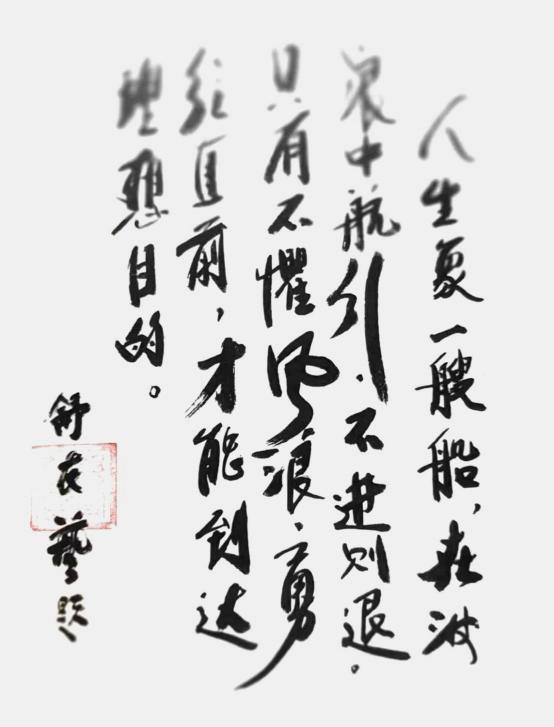 人生象一艘船，在波
浪中航引，不进则退。
只有不懼风浪，勇
往直前，才能到达
理想目的。
舒藝题